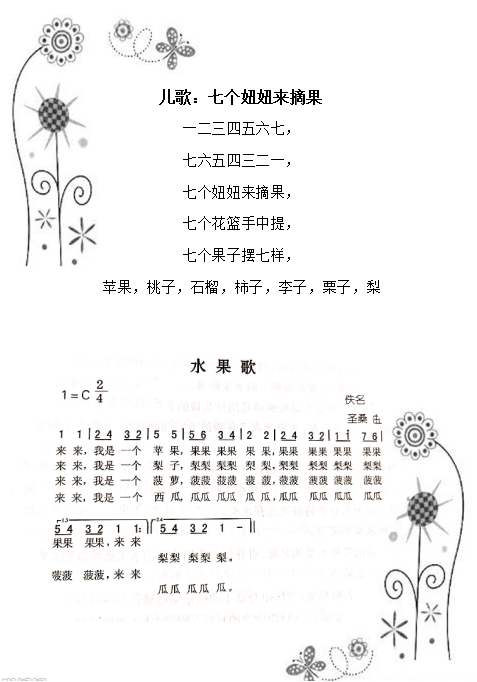 儿歌：七个妞妞来摘果
一二三四五六七，
七六五四三二一，
七个妞妞来摘果，
七个花篮手中提，
七个果子摆七样，
苹果，桃子，石榴，柿子，李子，栗子，梨
水果歌
1=C 2/4
佚名
圣桑 曲
1 1 | 2 4 3 2 | 5 5 | 5 6 3 4 | 2 2 | 2 4 3 2 | 1 1 7 6 |
来 来，我是 一个 苹 果，果果 果果 果 果，果果 果果 果果 果果
来 来，我是 一个 梨 子，梨梨 梨梨 梨 梨，梨梨 梨梨 梨梨 梨梨
来 来，我是 一个 菠 萝，菠菠 菠菠 菠 菠，菠菠 菠菠 菠菠 菠菠
来 来，我是 一个 西 瓜，瓜瓜 瓜瓜 瓜 瓜，瓜瓜 瓜瓜 瓜瓜 瓜瓜
5 4 3 2 1 1 :| 5 4 3 2 1 - ||
果果 果果，来 来
梨梨 梨梨 梨。
菠菠 菠菠，来 来
瓜瓜 瓜瓜 瓜。